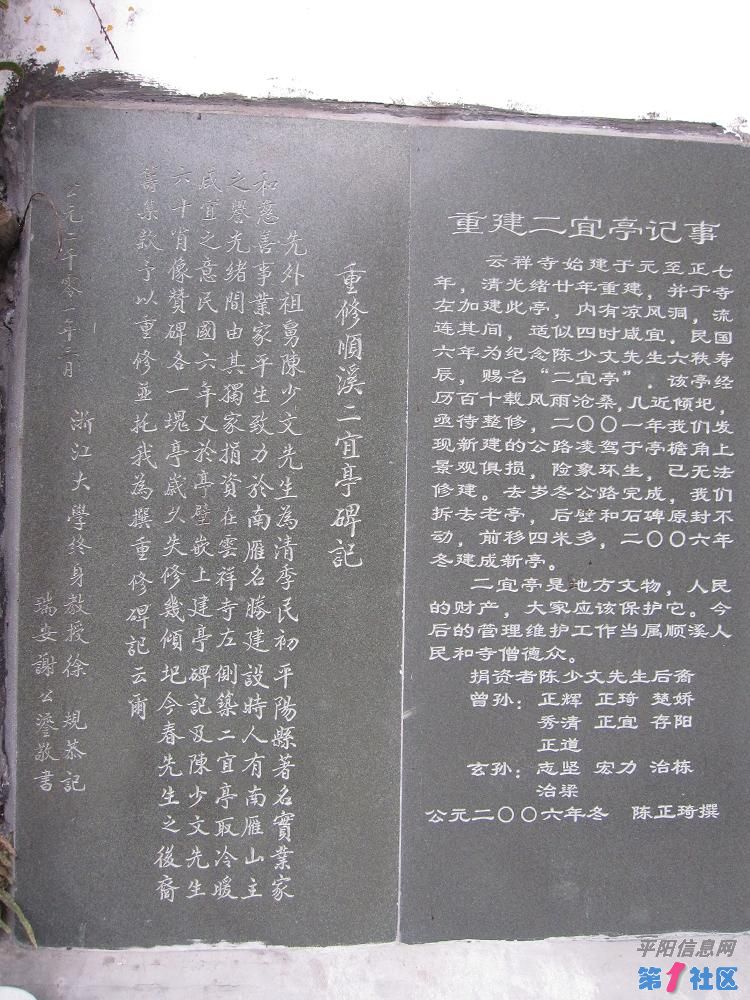 重建二宜亭记事
云祥寺始建于元至正七
年，清光绪廿年重建，并于寺
左加建此亭，内有凉风洞，流
连其间，适似四时咸宜．民国
六年为纪念陈少文先生六秩寿
辰，赐名“二宜亭”．该亭经
历百十载风雨沧桑，几近倾圯，
亟待整修，二〇〇一年我们发
现新建的公路凌驾于亭檐角上
景观俱损，险象环生，已无法
修建。去岁冬公路完成，我们
拆去老亭，后壁和石碑原封不
动，前移四米多，二〇〇六年
冬建成新亭。
二宜亭是地方文物，人民
的财产，大家应该保护它。今
后的管理维护工作当属顺溪人
民和寺僧德众。
捐资者陈少文先生后裔
曾孙：正辉 正琦 楚娇
秀清 正宜 存阳
正道
玄孙：志坚 宏力 治栋
治梁
公元二〇〇六年冬 陈正琦撰
重修順溪二宜亭碑記
先外祖舅陳少文先生為清季民初平陽縣著名實業家
和慈善事業家平生致力於南雁名勝建設時人有南雁山主
之譽光緒間由其獨家捐資在雲祥寺左側築二宜亭取冷暖
咸宜之意民國六年又於亭壁嵌上建亭碑記及陳少文先生
六十肖像贊碑各一塊亭歲久失修幾傾圯今春先生之後裔
籌集款予以重修並托我為撰重修碑記云爾
公元二千零一年二月 浙江大學終身教授徐規恭記
瑞安謝公鎏敬書
平阳信息网
第1社区